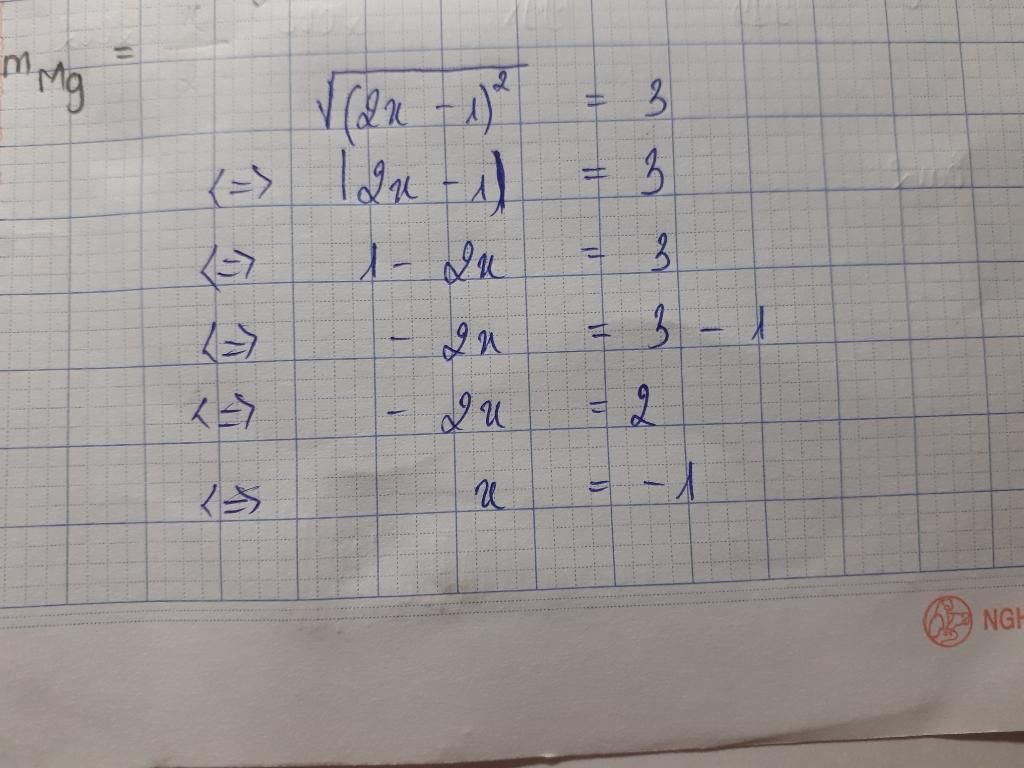 m Mg =
√(2x - 1)² = 3
<=> |2x - 1| = 3
<=> 1 - 2x = 3
<=> - 2x = 3 - 1
<=> - 2x = 2
<=> x = - 1
NGH